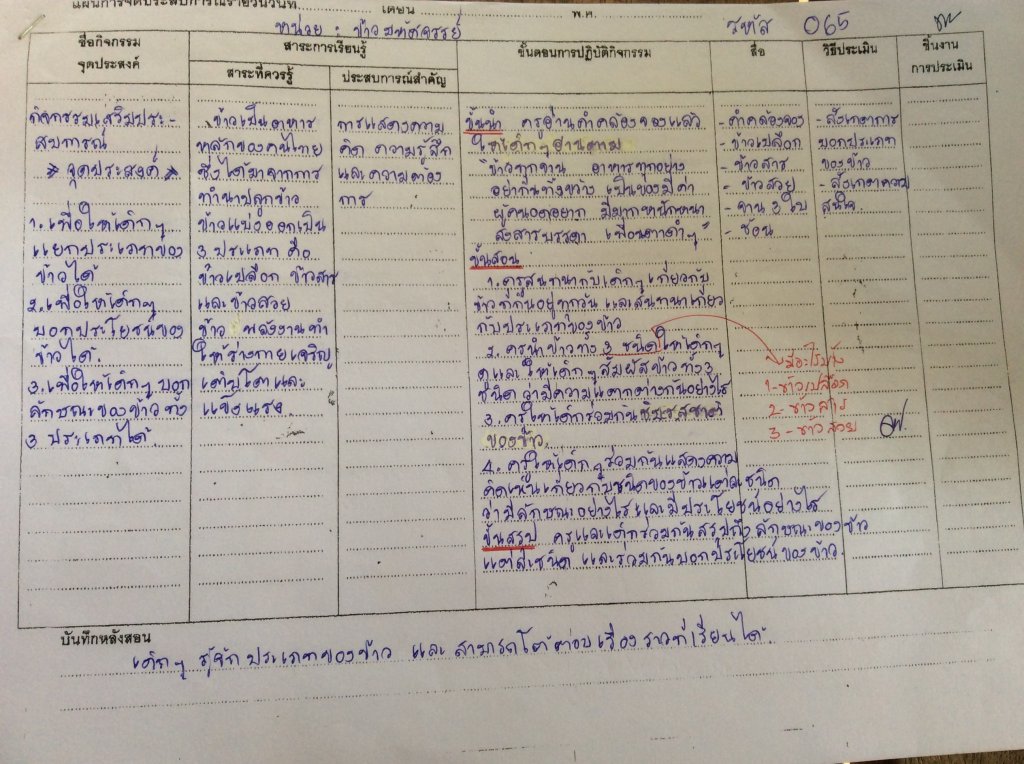 แผนการจัดประสบการณ์รายวันวันที่ เดือน พ.ศ.
หน่วย : ข้าวมหัศจรรย์
รหัส 065
ชื่อกิจกรรม
จุดประสงค์
สาระการเรียนรู้
สาระที่ควรรู้
ประสบการณ์สำคัญ
ขั้นตอนการปฏิบัติกิจกรรม
สื่อ
วิธีประเมิน
ชิ้นงาน
การประเมิน
กิจกรรมเสริมประ-
สบการณ์
จุดประสงค์
1. เพื่อให้เด็กๆ
แยกประเภทของ
ข้าวได้
2. เพื่อให้เด็กๆ
บอกประโยชน์ของ
ข้าวได้.
3. เพื่อให้เด็กๆ บอก
ลักษณะของข้าว ทั้ง
3 ประเภทได้.
ข้าวเป็นอาหาร
หลักของคนไทย
ซึ่งได้มาจากการ
ทำนาปลูกข้าว
ข้าวแบ่งออกเป็น
3 ประเภท คือ
ข้าวเปลือก ข้าวสาร
และข้าวสวย
ข้าว พลังงานทำ
ให้ร่างกายเจริญ
เติบโตและ
แข็งแรง
การแสดงความ
คิด ความรู้สึก
และความต้อง
การ
ขั้นนำ ครูอ่านคำคล้องจองแล้ว
ให้เด็กๆอ่านตาม
"ข้าวทุกจาน อาหารทุกอย่าง
อย่ากินทิ้งขว้าง เป็นของมีค่า
ผู้คนอดอยาก มีมากหนักหนา
สงสารบรรดา เพื่อนตาดำๆ"
ขั้นสอน
1. ครูสนทนากับเด็กๆ เกี่ยวกับ
ข้าวที่กินอยู่ทุกวัน และสนทนาเกี่ยว
กับประเภทของข้าว
2. ครูนำข้าวทั้ง 3 ชนิดให้เด็กๆ
ดูและให้เด็กๆ สัมผัสข้าวทั้ง 3
ชนิด ว่ามีความแตกต่างกันอย่างไร
3. ครูให้เด็กร่วมกันชิมรสชาติ
ของข้าว.
4. ครูให้เด็กๆ ร่วมกันแสดงความ
คิดเห็นเกี่ยวกับชนิดของข้าวแต่ละชนิด
ว่ามีลักษณะอย่างไรและมีประโยชน์อย่างไร
ขั้นสรุป ครูและเด็กร่วมกันสรุปถึงลักษณะของข้าว
แต่ละชนิด และร่วมกันบอกประโยชน์ของข้าว.
- คำคล้องจอง
- ข้าวเปลือก
- ข้าวสาร
- ข้าวสวย
- จาน 3 ใบ
- ช้อน
- สังเกตการ
บอกประเภท
ของข้าว
- สังเกตความ
สนใจ
มีอะไรบ้าง
1 - ข้าวเปลือก
2 - ข้าวสาร
3 - ข้าวสวย
บันทึกหลังสอน
เด็กๆ รู้จักประเภทของข้าว และ สามารถโต้ตอบเรื่องราวที่เรียนได้.